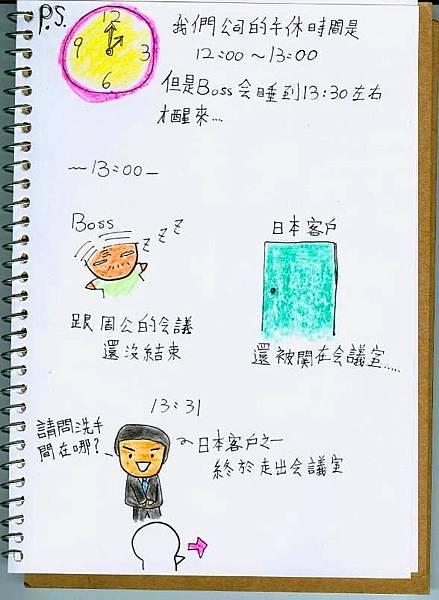 P.S.
12
9 3
6
我們公司的午休時間是
12:00~13:00
但是Boss会睡到13:30左右
才醒來...
~13:00-
Boss
z z z
日本客戶
跟周公的会議
還沒結束
還被関在会議室.....
13:31
請問洗手
間在哪?
日本客戶之一
終於走出会議室